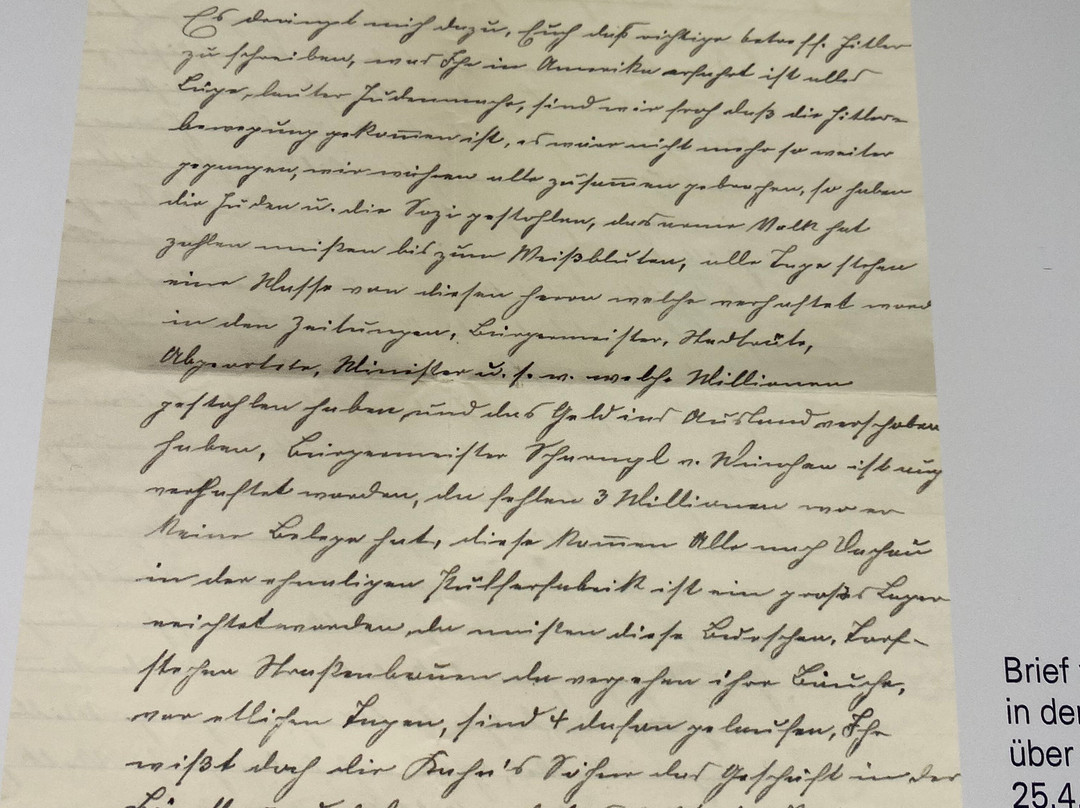 Es drängt mich dazu, Euch das richtige betreff. Hitler
zu schreiben, was Ihr in Amerika erfahrt ist alles
Lüge, lauter Judenmache, sind wir froh daß die Hitler-
bewegung gekommen ist, es wär nicht mehr so weiter
gegangen, wir währen alle zusammen gebrochen, so haben
die Juden u. die Sozi gestohlen, das arme Volk hat
zahlen müßen bis zum Weißbluten, alle Tage stehen
eine Masse von diesen Herrn welche verhaftet word
in den Zeitungen, Bürgermeister, Stadträte,
Abgeortete, Minister u. s. w. welche Millionen
gestohlen haben, und das Geld ins Ausland verschoben
haben, Bürgermeister Scharnagl v. München ist auch
verhaftet worden, da fehlen 3 Millionen wo er
keine Belege hat, diese kommen Alle nach Dachau
in der ehmaligen Pulferfabrik ist ein großes Lager
errichtet worden, da müßen diese Burschen, Torf-
stechen Straßenbauen da vergehen ihre Bäuche,
vor etlichen Tagen, sind 4 dafon gelaufen, Ihr
wißt doch die Kahn's Söhne das Geschäft in der
Brief
in der
über
25.4